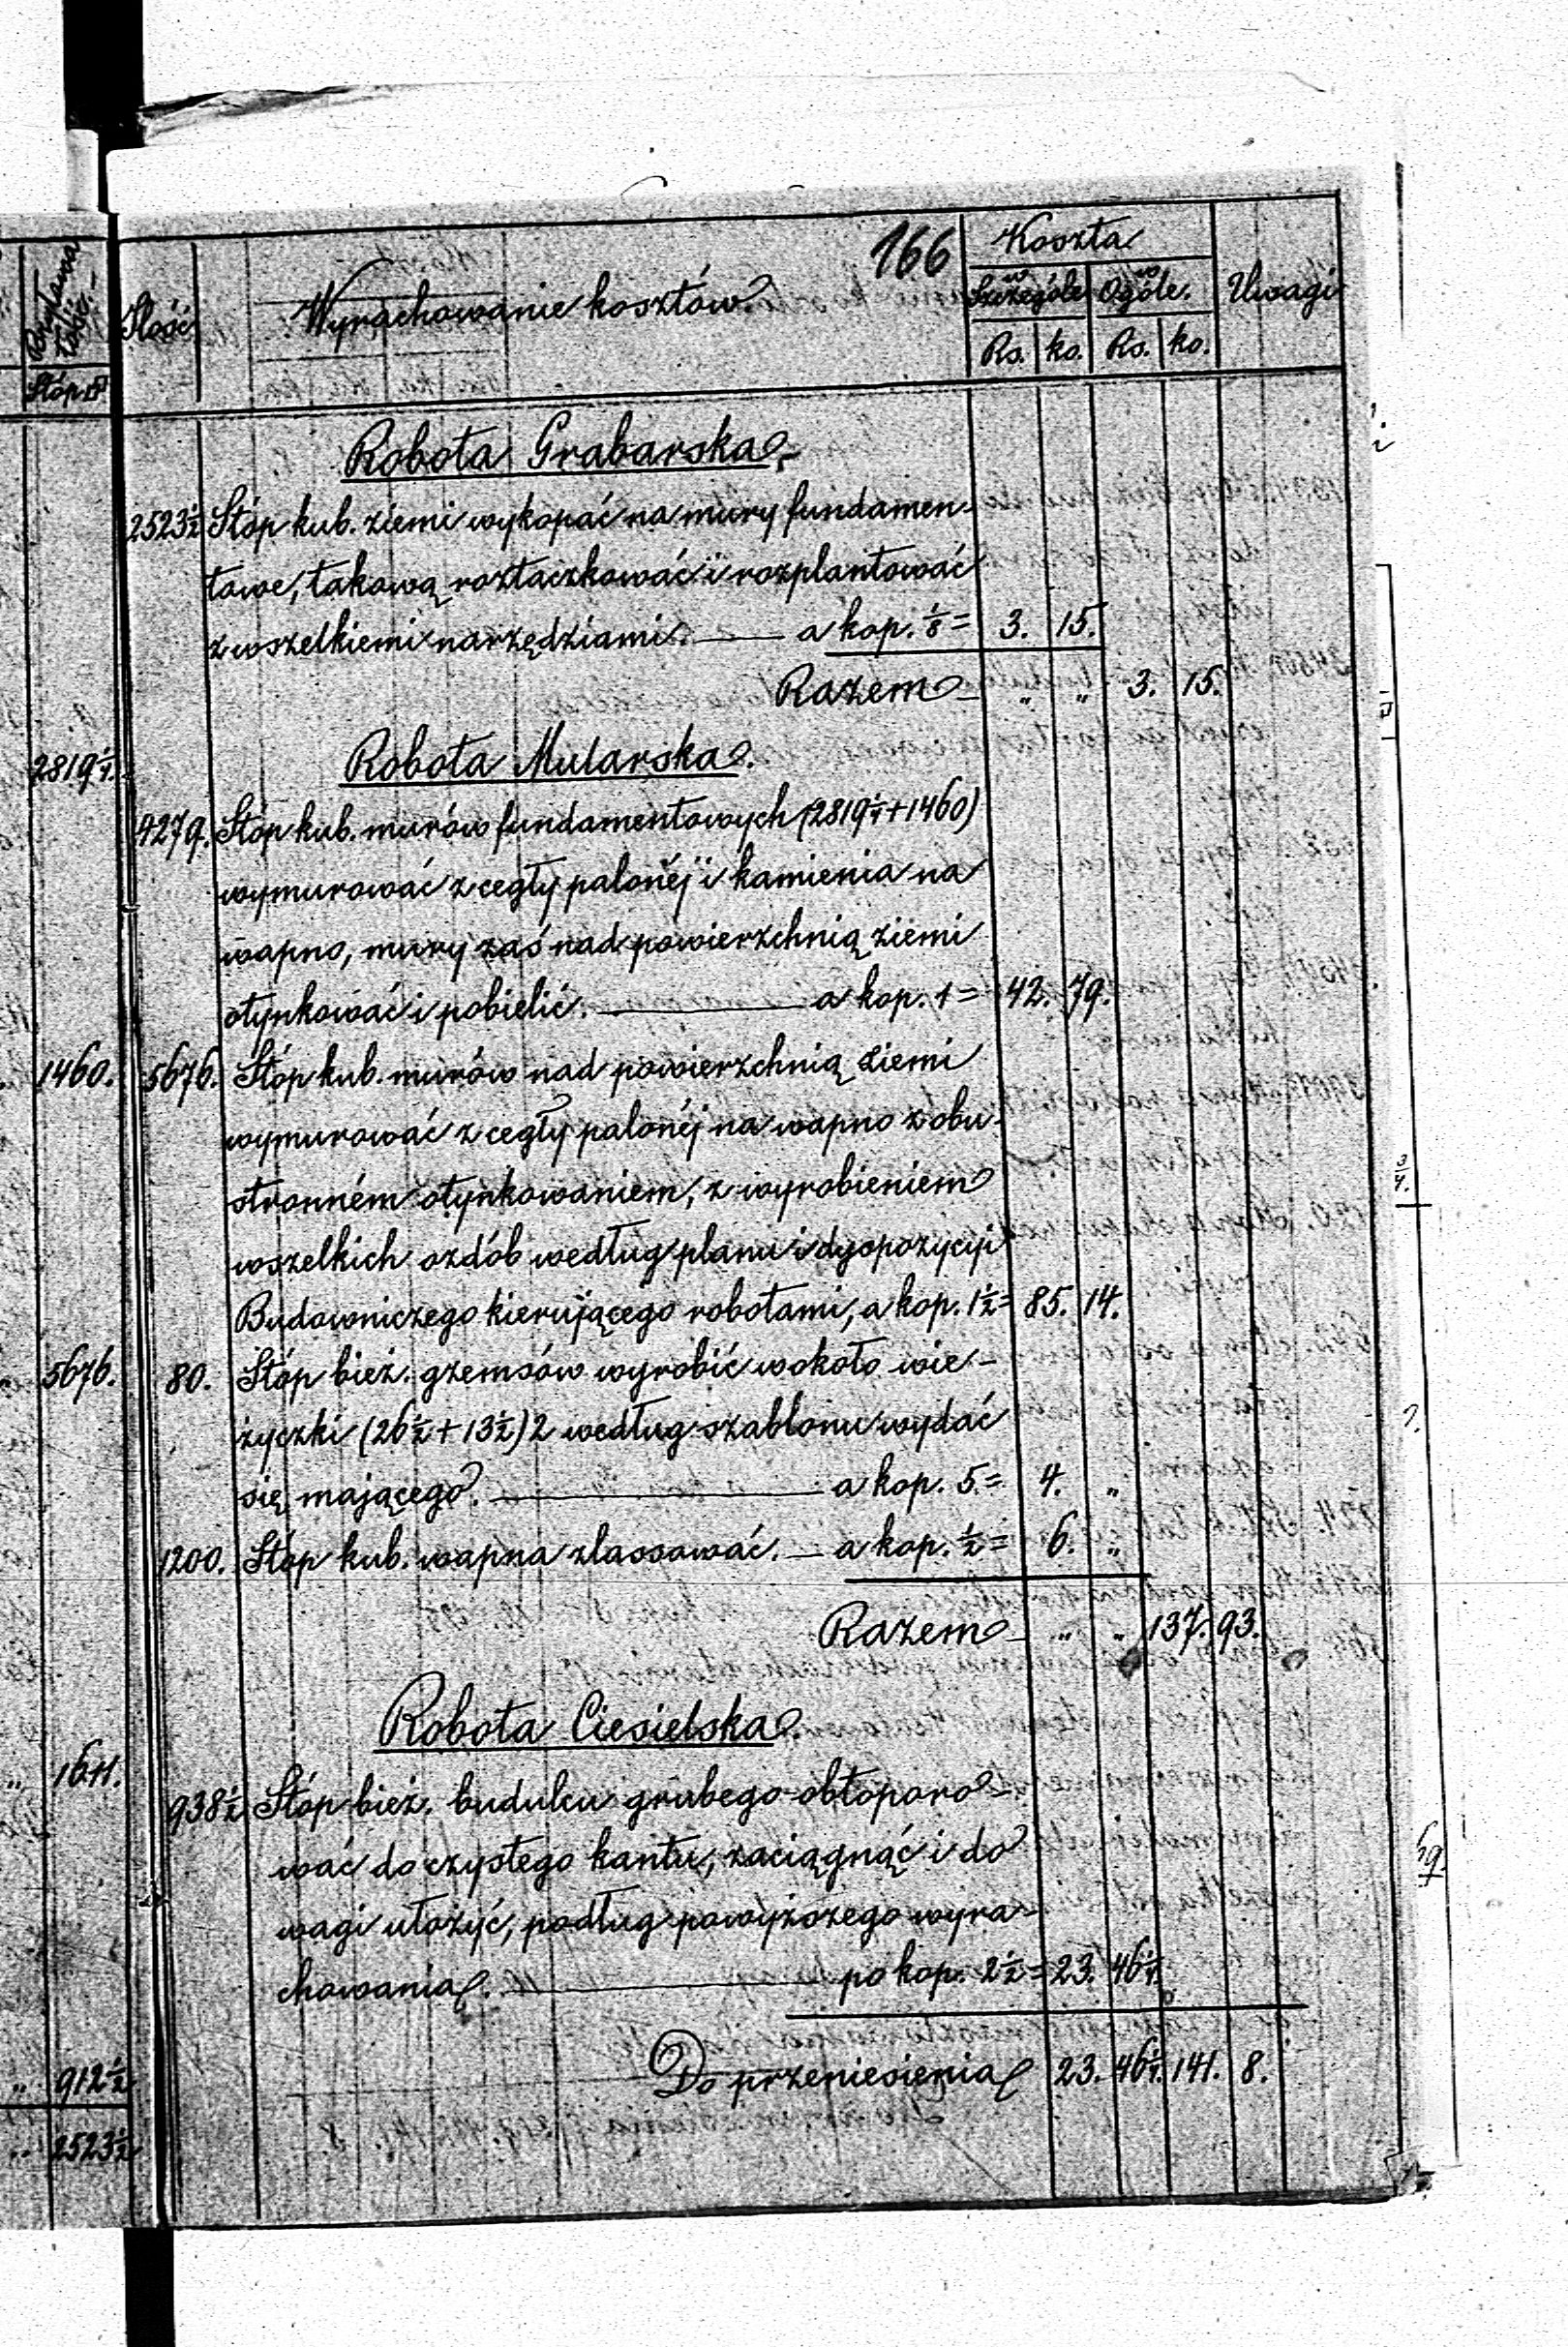 166
Koszta
Bryłowa
tość.
Ilość
Wyrachowanie kosztów
w Szczególe
w Ogóle.
Uwagi
Rs. ko. Rs. ko.
Stóp
Robota Grabarska.
2523½ Stóp kub. ziemi wykopać na mury fundamen-
towe, takową roztaczkować i rozplantować
z wszelkiemi narzędziami. — a kop. ⅛ = 3. 15.
Razem — „ „ 3. 15.
2819¼.
Robota Mularska.
4279. Stóp kub. murów fundamentowych (2819¼+1460)
wymurować z cegły palonéj i kamienia na
wapno, mury zaś nad powierzchnią ziemi
otynkować i pobielić. — a kop. 1 = 42. 79.
1460. 5676. Stóp kub. murów nad powierzchnią ziemi
wymurować z cegły palonéj na wapno z obu-
stronném otynkowaniem, z wyrobieniem
wszelkich ozdób według planu i dyspozycyi
Budowniczego kierującego robotami, a kop. 1½= 85. 14.
5676. 80. Stóp bież. gzemsów wyrobić wokoło wie-
życzki (26½+13½)2 według szablonu wydać
się mającego. — a kop. 5.= 4. „
1200. Stóp kub. wapna zlassować. — a kop. ½ = 6. „
Razem — „ „ 137. 93.
Robota Ciesielska.
„ 1611.
938½ Stóp bież. budulcu grubego obtoporo-
wać do czystego kantu, zaciągnąć i do
wagi ułożyć, podług powyższego wyra-
chowania. — po kop. 2½ = 23. 46¼.
Do przeniesienia 23. 46¼. 141. 8.
„ 912½
„ 2523½